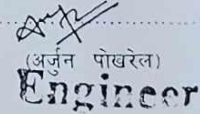 (अर्जुन पोखरेल)
Engineer